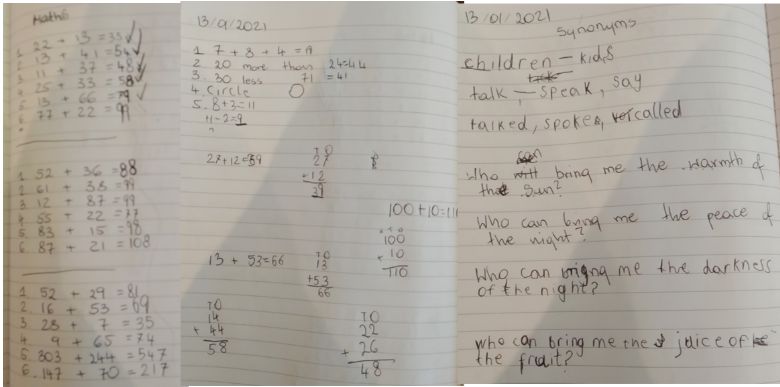 Maths
1. 22 + 13 = 35
2. 13 + 41 = 54
3. 11 + 37 = 48
4. 25 + 33 = 58
5. 13 + 66 = 79
6. 77 + 22 = 99
1. 52 + 36 = 88
2. 61 + 38 = 99
3. 12 + 87 = 99
4. 55 + 22 = 77
5. 83 + 15 = 98
6. 87 + 21 = 108
1. 52 + 29 = 81
2. 16 + 53 = 69
3. 28 + 7 = 35
4. 9 + 65 = 74
5. 303 + 244 = 547
6. 147 + 70 = 217
13/9/2021
1. 7 + 8 + 4 =
2. 20 more than 24=44
3. 30 less 71 = 41
4. Circle
5. 8+3=11
11-2=9
27+12=39
TO
27
+12
39
100+10=110
100
+ 10
110
13 + 53=66
TO
13
+53
66
TO
14
+ 44
58
TO
22
+ 26
48
13/01/2021
Synonyms
children – kids
talk – speak, say
talked, spoke, called
Who can bring me the warmth of
the sun?
Who can bring me the peace of
the night?
Who can me the darkness
of the night?
who can bring me the juice of
the fruit?